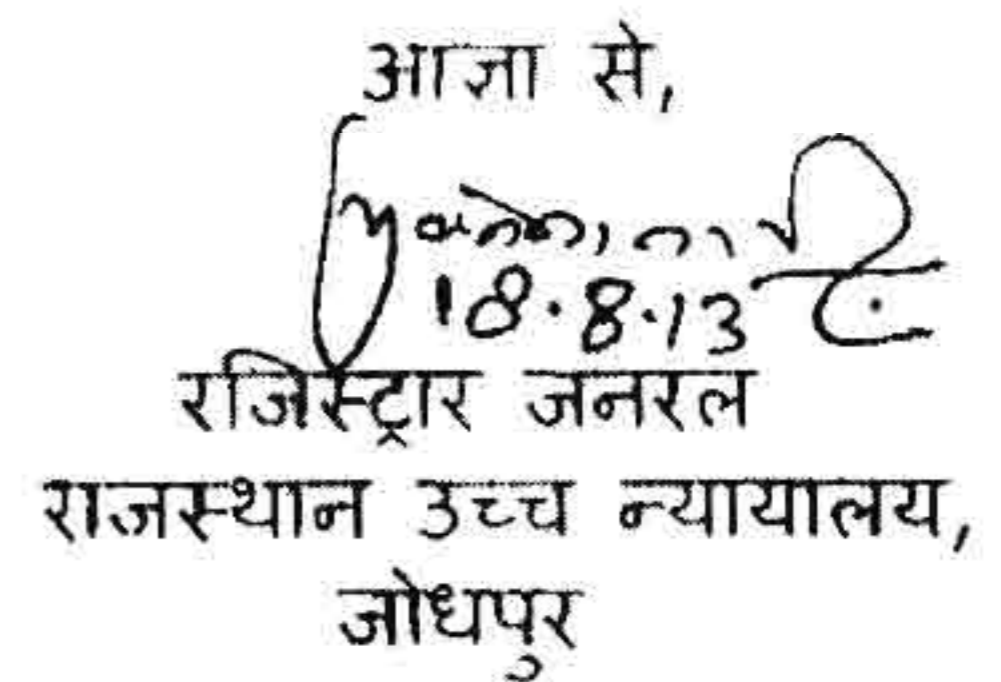 आज्ञा से,
18.8.13
रजिस्ट्रार जनरल
राजस्थान उच्च न्यायालय,
जोधपुर